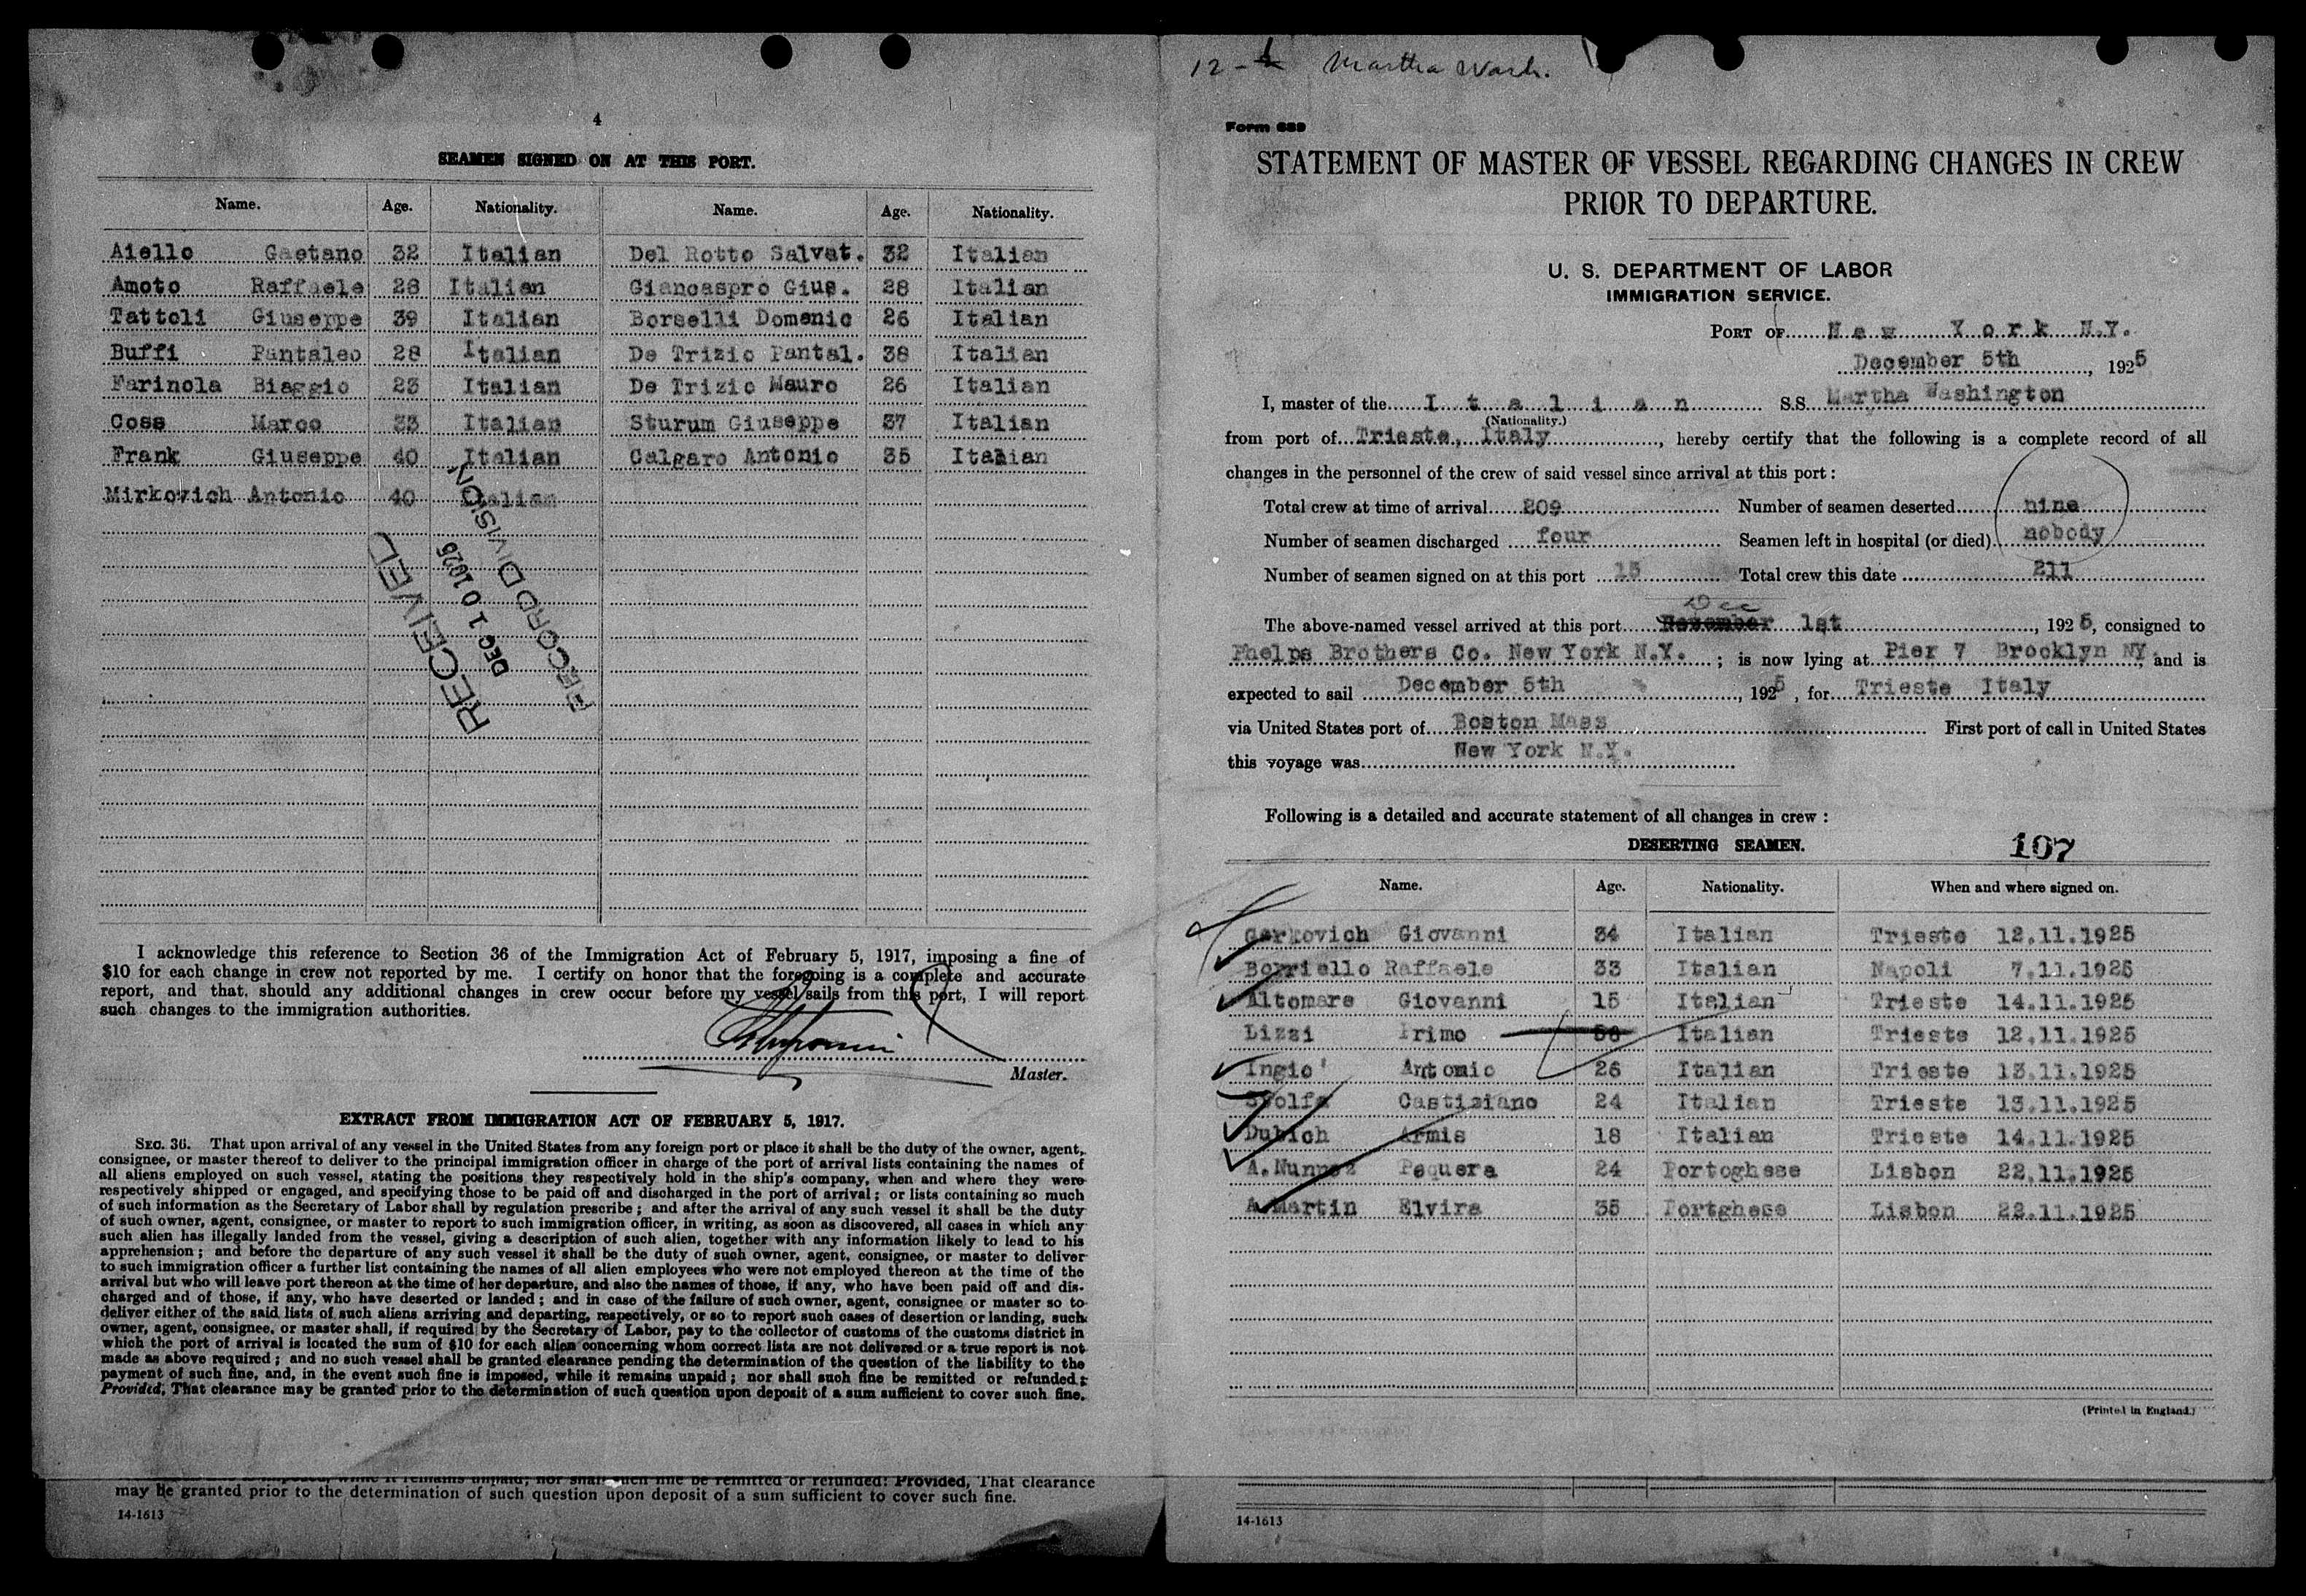 4
SEAMEN SIGNED ON AT THIS PORT.
Name. Age. Nationality. Name. Age. Nationality.
Aiello Gaetano 32 Italian Del Rotto Salvat. 32 Italian
Amoto Raffaele 28 Italian Giancaspro Gius. 28 Italian
Tattoli Giuseppe 39 Italian Borselli Domenic 26 Italian
Buffi Pantaleo 28 Italian De Trizio Pantal. 38 Italian
Farinola Biaggio 23 Italian De Trizio Mauro 26 Italian
Coss Marco 33 Italian Sturum Giuseppe 37 Italian
Frank Giuseppe 40 Italian Calgaro Antonio 35 Italian
Mirkovich Antonio 40 Italian
RECEIVED
DEC 10 1925
RECORD DIVISION
I acknowledge this reference to Section 36 of the Immigration Act of February 5, 1917, imposing a fine of
$10 for each change in crew not reported by me. I certify on honor that the foregoing is a complete and accurate
report, and that, should any additional changes in crew occur before my vessel sails from this port, I will report
such changes to the immigration authorities.
Master.
EXTRACT FROM IMMIGRATION ACT OF FEBRUARY 5, 1917.
SEC. 36. That upon arrival of any vessel in the United States from any foreign port or place it shall be the duty of the owner, agent,
consignee, or master thereof to deliver to the principal immigration officer in charge of the port of arrival lists containing the names of
all aliens employed on such vessel, stating the positions they respectively hold in the ship's company, when and where they were
respectively shipped or engaged, and specifying those to be paid off and discharged in the port of arrival; or lists containing so much
of such information as the Secretary of Labor shall by regulation prescribe; and after the arrival of any such vessel it shall be the duty
of such owner, agent, consignee, or master to report to such immigration officer, in writing, as soon as discovered, all cases in which any
such alien has illegally landed from the vessel, giving a description of such alien, together with any information likely to lead to his
apprehension; and before the departure of any such vessel it shall be the duty of such owner, agent, consignee, or master to deliver
to such immigration officer a further list containing the names of all alien employees who were not employed thereon at the time of the
arrival but who will leave port thereon at the time of her departure, and also the names of those, if any, who have been paid off and dis-
charged and of those, if any, who have deserted or landed; and in case of the failure of such owner, agent, consignee or master so to
deliver either of the said lists of such aliens arriving and departing, respectively, or so to report such cases of desertion or landing, such
owner, agent, consignee, or master shall, if required by the Secretary of Labor, pay to the collector of customs of the customs district in
which the port of arrival is located the sum of $10 for each alien concerning whom correct lists are not delivered or a true report is not
made as above required; and no such vessel shall be granted clearance pending the determination of the question of the liability to the
payment of such fine, and, in the event such fine is imposed, while it remains unpaid; nor shall such fine be remitted or refunded:
Provided, That clearance may be granted prior to the determination of such question upon deposit of a sum sufficient to cover such fine.
while it remains unpaid; nor shall such fine be remitted or refunded: Provided, That clearance
may be granted prior to the determination of such question upon deposit of a sum sufficient to cover such fine.
14-1613
12- Martha Wash.
Form 689
STATEMENT OF MASTER OF VESSEL REGARDING CHANGES IN CREW
PRIOR TO DEPARTURE.
U. S. DEPARTMENT OF LABOR
IMMIGRATION SERVICE.
PORT OF New York N.Y.
December 5th, 1925
I, master of the Italian S.S. Martha Washington
(Nationality.)
from port of Trieste, Italy, hereby certify that the following is a complete record of all
changes in the personnel of the crew of said vessel since arrival at this port:
Total crew at time of arrival 209 Number of seamen deserted nine
Number of seamen discharged four Seamen left in hospital (or died) nobody
Number of seamen signed on at this port 15 Total crew this date 211
Dec
The above-named vessel arrived at this port November 1st, 1925, consigned to
Phelps Brothers Co. New York N.Y. ; is now lying at Pier 7 Brooklyn NY. and is
expected to sail December 5th, 1925, for Trieste Italy
via United States port of Boston Mass First port of call in United States
this voyage was New York N.Y.
Following is a detailed and accurate statement of all changes in crew:
DESERTING SEAMEN. 107
Name. Age. Nationality. When and where signed on.
Gerkovich Giovanni 34 Italian Trieste 12.11.1925
Borriello Raffaele 33 Italian Napoli 7.11.1925
Altomare Giovanni 15 Italian Trieste 14.11.1925
Lizzi Primo Italian Trieste 12.11.1925
Ingio' Antonio 26 Italian Trieste 13.11.1925
Castiziano 24 Italian Trieste 13.11.1925
Dubich Armis 18 Italian Trieste 14.11.1925
A.Nunnez Pequera 24 Portoghese Lisbon 22.11.1925
A.Martin Elvira 35 Portghese Lisbon 22.11.1925
(Printed in England.)
14-1613